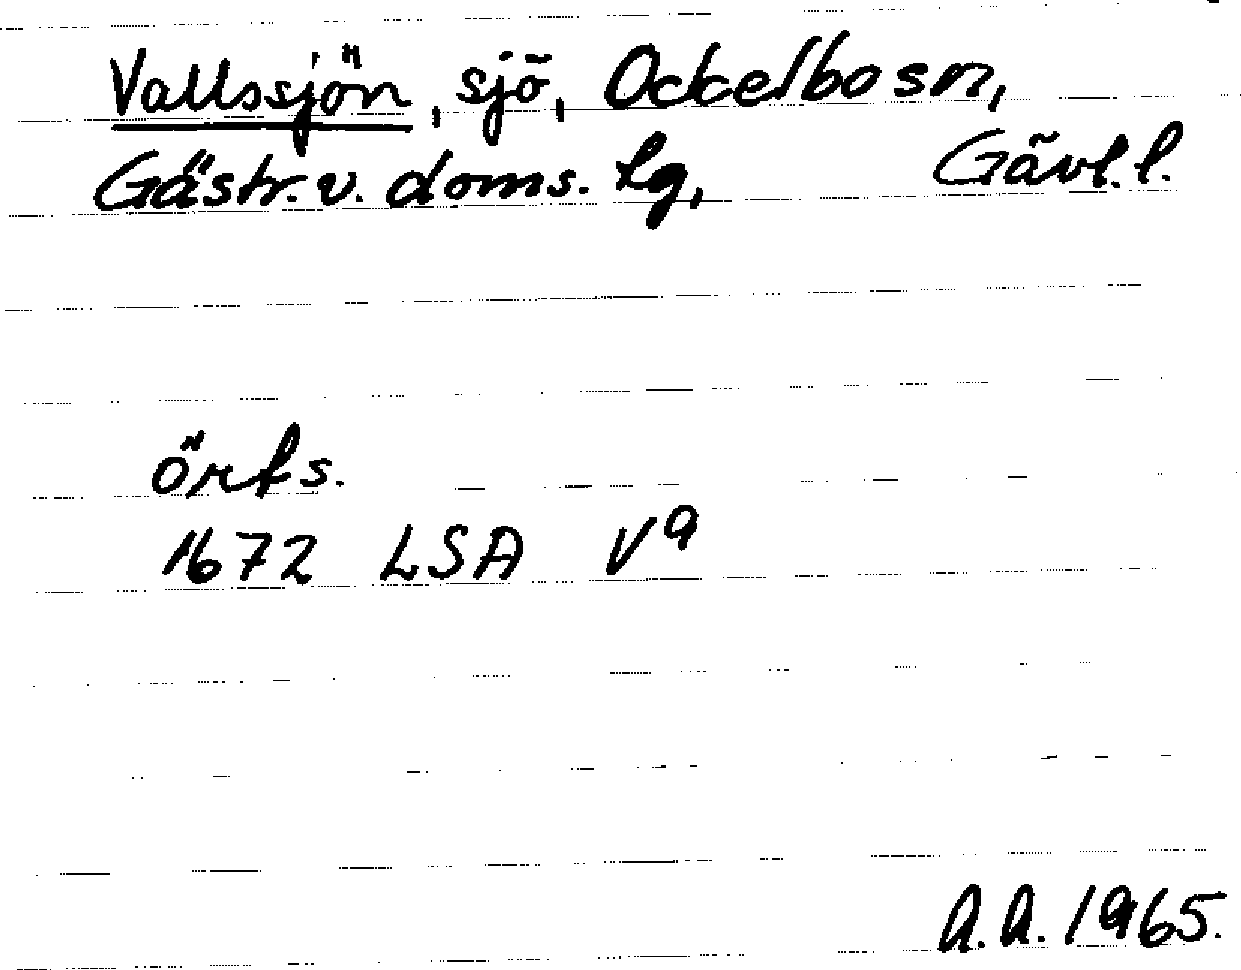 Vallssjön, sjö, Ockelbo sn,
Gästr. v. doms. lg, Gävl. l.
örts.
1672 LSA V 9
A.A. 1965.